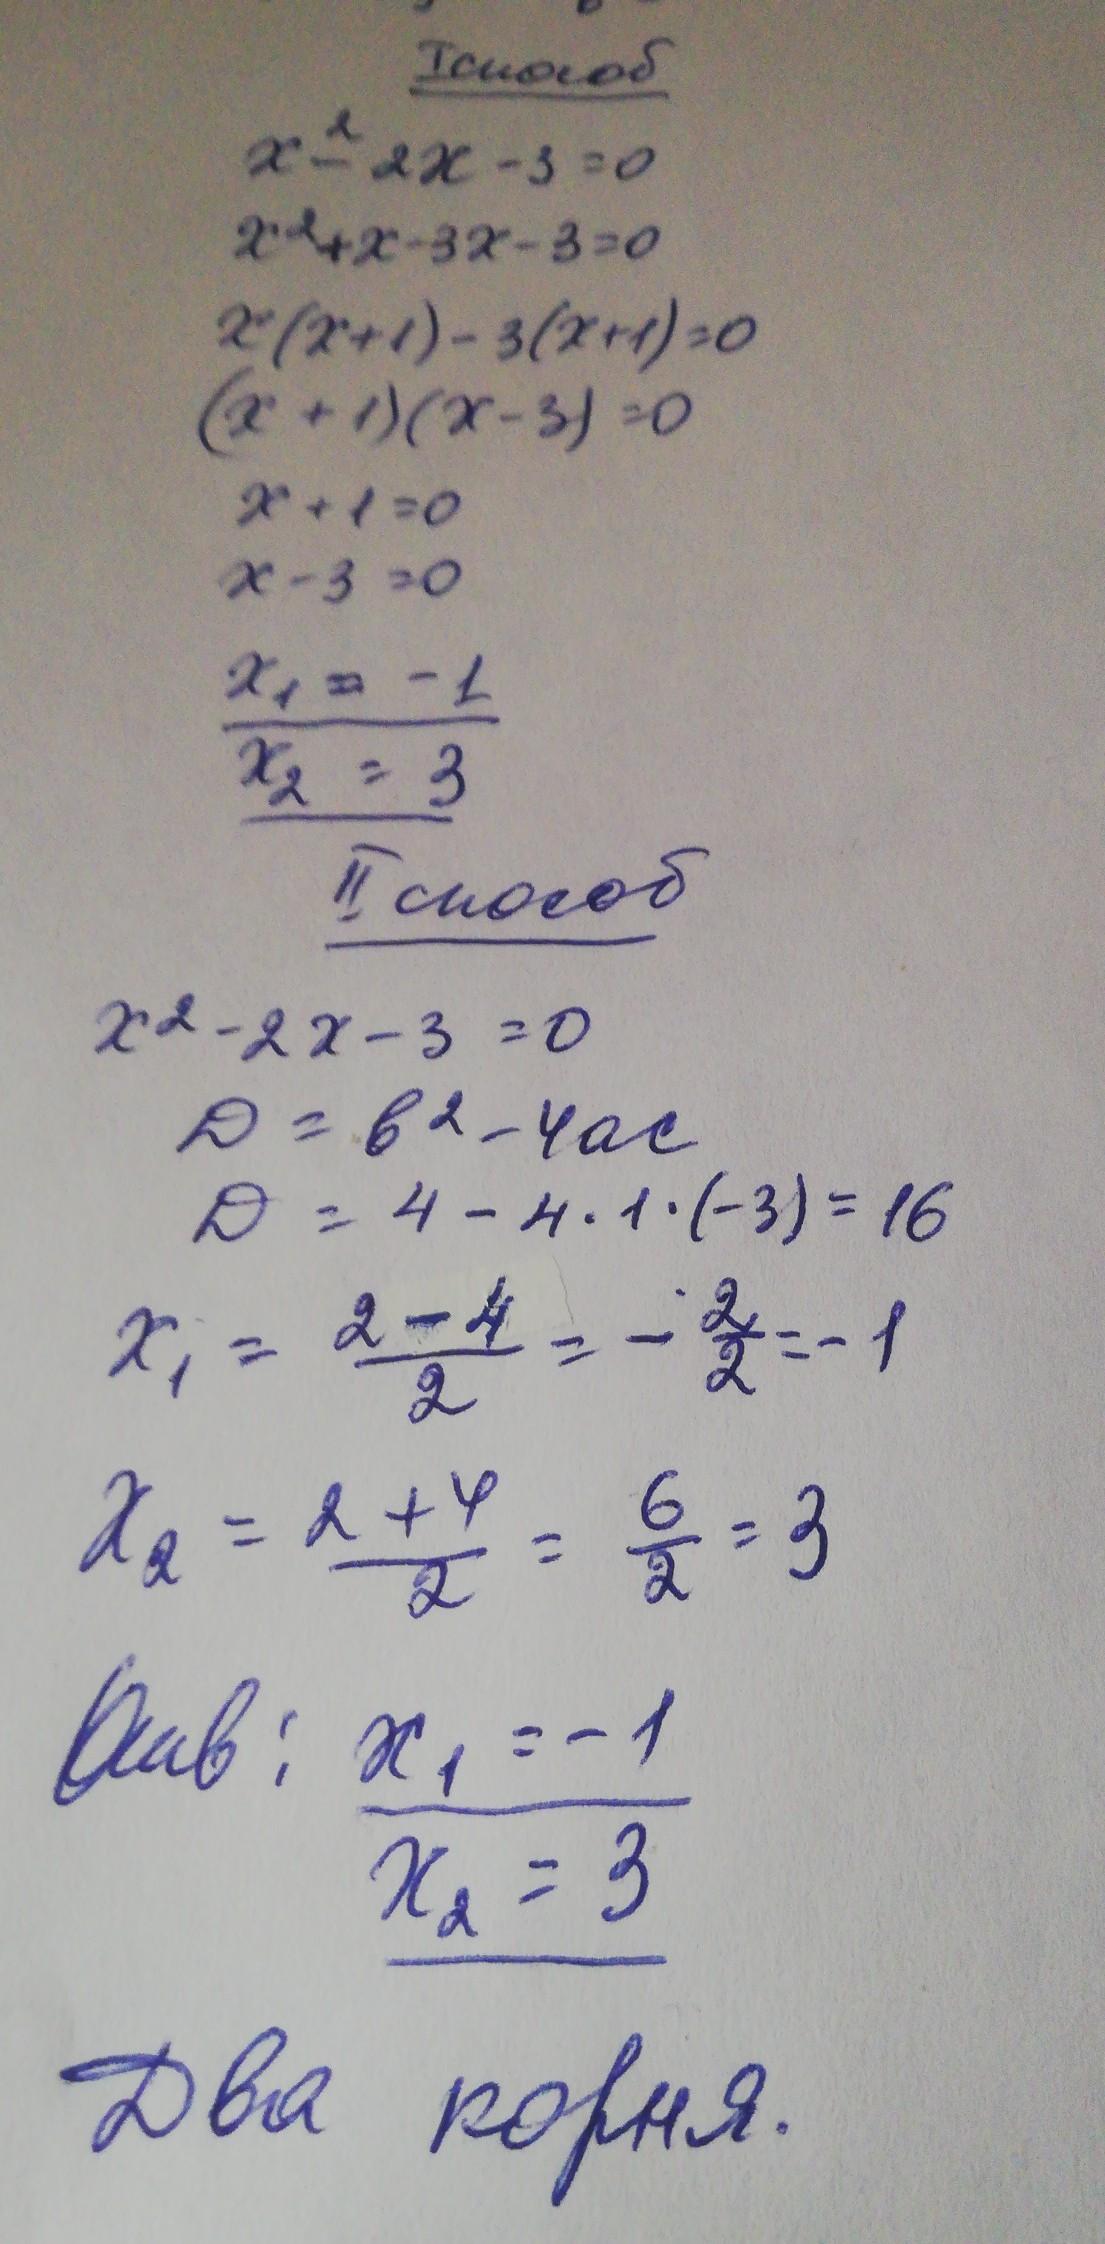 I способ
x² - 2x - 3 = 0
x² + x - 3x - 3 = 0
x(x+1) - 3(x+1) = 0
(x + 1)(x - 3) = 0
x + 1 = 0
x - 3 = 0
x₁ = -1
x₂ = 3
II способ
x² - 2x - 3 = 0
D = b² - 4ac
D = 4 - 4·1·(-3) = 16
x₁ = (2 - 4)/2 = -2/2 = -1
x₂ = (2 + 4)/2 = 6/2 = 3
Отв: x₁ = -1
x₂ = 3
Два корня.